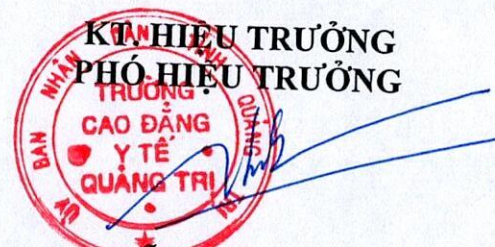 KT. HIỆU TRƯỞNG
PHÓ HIỆU TRƯỞNG
ỦY BAN NHÂN DÂN TỈNH QUẢNG TRỊ
TRƯỜNG
CAO ĐẲNG
Y TẾ
QUẢNG TRỊ